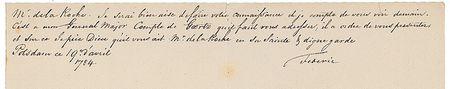 Mr. de la Roche. Je serai bien aise de faire votre connaissance et je compte de vous voir demain.
C'est a mon General Major Comte de qu'il faut vous adresser, il a ordre de vous presenter
et sur ce je prie Dieu qu'il vous ait Mr. de la Roche en sa Sainte & digne garde
Potsdam ce 19 d'avril
1784.
Federic